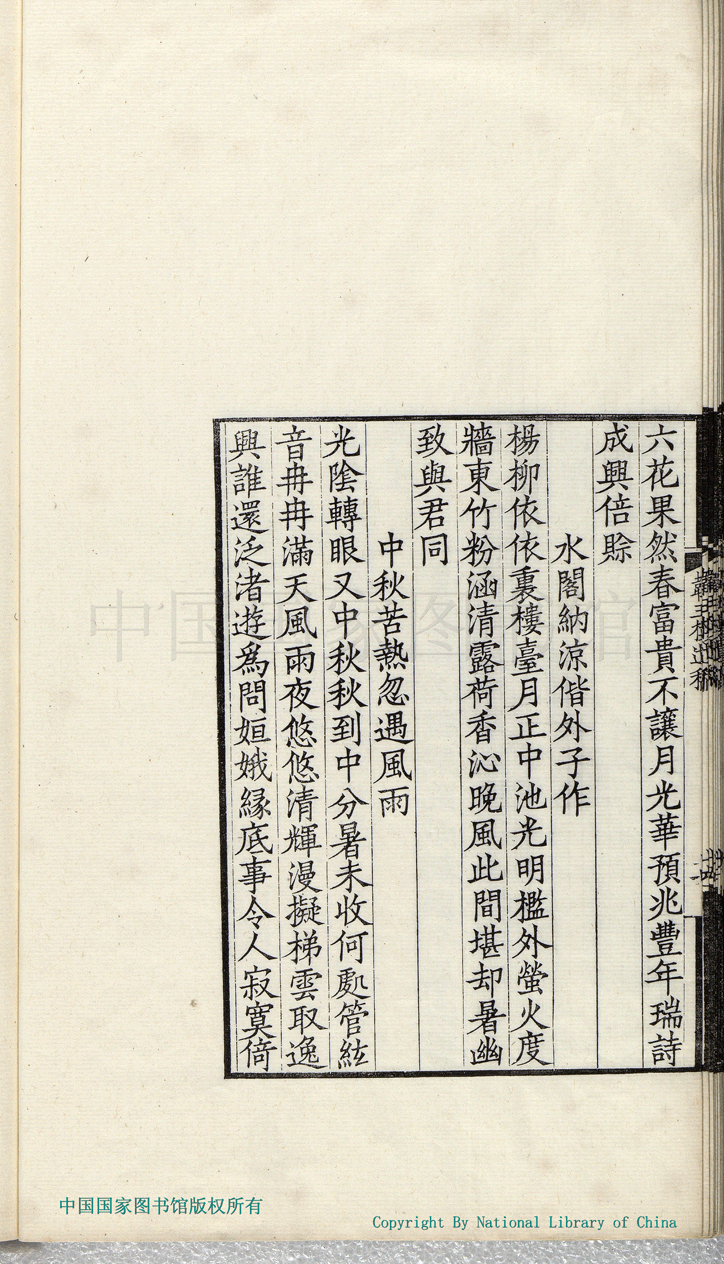 六花果然春富貴不讓月光華預兆豐年瑞詩
成興倍賒
水閣納涼偕外子作
楊柳依依裏樓臺月正中池光明檻外螢火度
牆東竹粉涵清露荷香沁晚風此間堪却暑幽
致與君同
中秋苦熱忽遇風雨
光陰轉眼又中秋秋到中分暑未收何處管絃
音冉冉滿天風雨夜悠悠清輝漫擬梯雲取逸
興誰還泛渚遊為問姮娥緣底事令人寂寞倚
中国国家图书馆
中国国家图书馆版权所有
Copyright By National Library of China